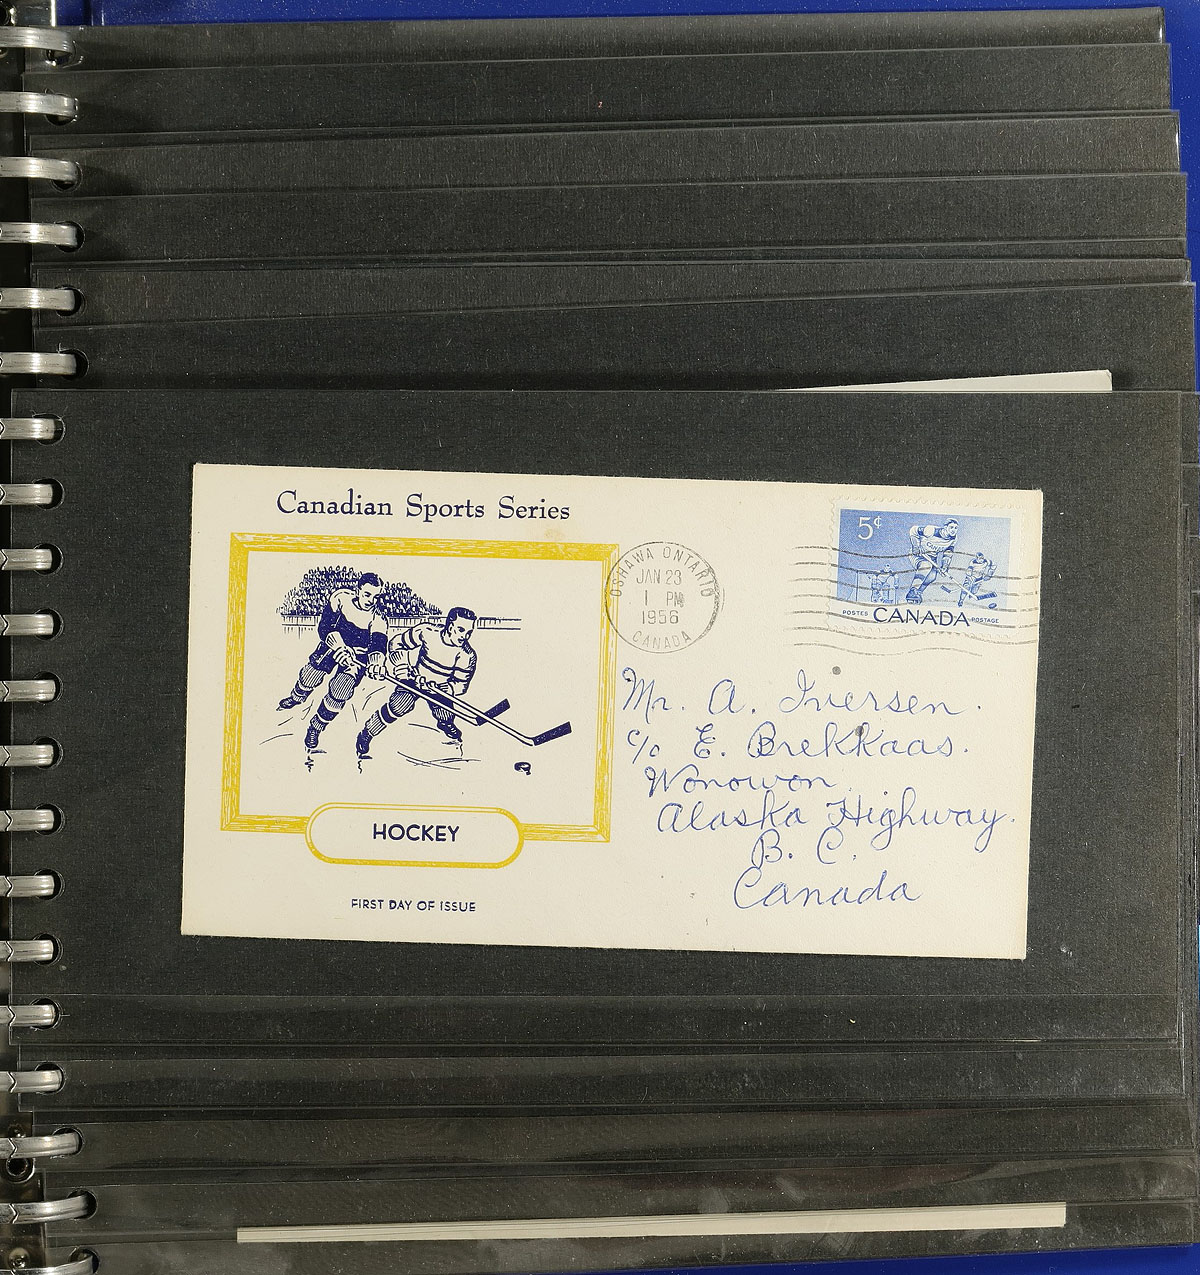 Canadian Sports Series
HOCKEY
FIRST DAY OF ISSUE
OSHAWA ONTARIO
JAN 23
1 PM
1956
CANADA
5¢
POSTES CANADA POSTAGE
Mr. A. Iversen.
c/o E. Brekkaas.
Wonowon
Alaska Highway.
B. C.
Canada